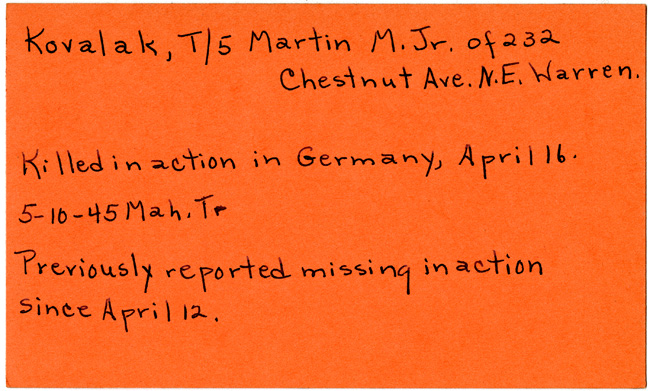 Kovalak, T/5 Martin M. Jr. of 232
Chestnut Ave. N.E. Warren.
Killed in action in Germany, April 16.
5-10-45 Mah. Tr
Previously reported missing in action
since April 12.